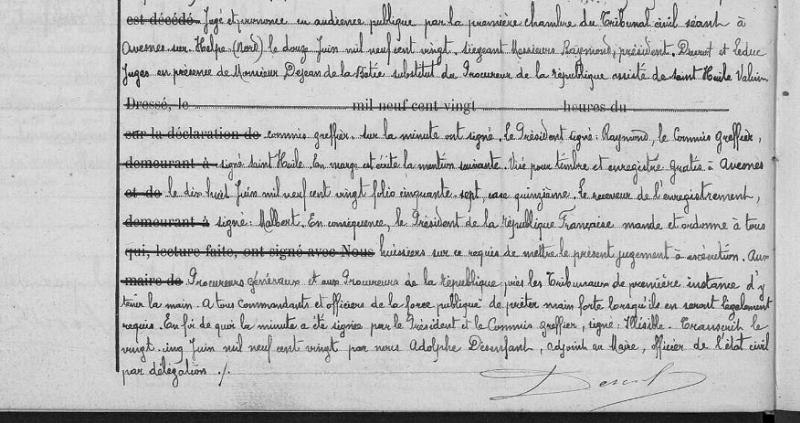 est décédé. Jugé et prononcé en audience publique par la première chambre du Tribunal civil séant à
Avesnes-sur-Helpe (Nord) le douze Juin mil neuf cent vingt. siégeant Messieurs Raymond, président. Ducrot et Leduc
Juges en présence de Monsieur Dejean de la Batie substitut du Procureur de la république assisté de saint Huile
Dressé, le mil neuf cent vingt heures du
sur la déclaration de commis greffier. sur la minute ont signé. Le Président signé: Raymond, le Commis Greffier,
demeurant à signé saint Huile. En marge est écrite la mention suivante. Visé pour timbre et enregistré gratis à Avesnes
et de le dix huit Juin mil neuf cent vingt folio cinquante sept, case quinzième. Le receveur de l'enregistrement,
demeurant à signé: Malbert. En conséquence, le Président de la république Française mande et ordonne à tous
qui, lecture faite, ont signé avec Nous huissiers sur ce requis de mettre le présent jugement à exécution. Aux
maire de Procureurs généraux et aux Procureurs de la république près les Tribunaux de première instance d'y
tenir la main. A tous Commandants et officiers de la force publique de prêter main forte lorsqu'ils en seront légalement
requis. En foi de quoi la minute a été signée par le Président et le Commis greffier, signé: Illisible. Transcrit le
vingt-cinq Juin mil neuf cent vingt par nous Adolphe Desenfant, adjoint au Maire, officier de l'état civil
par délégation ./.